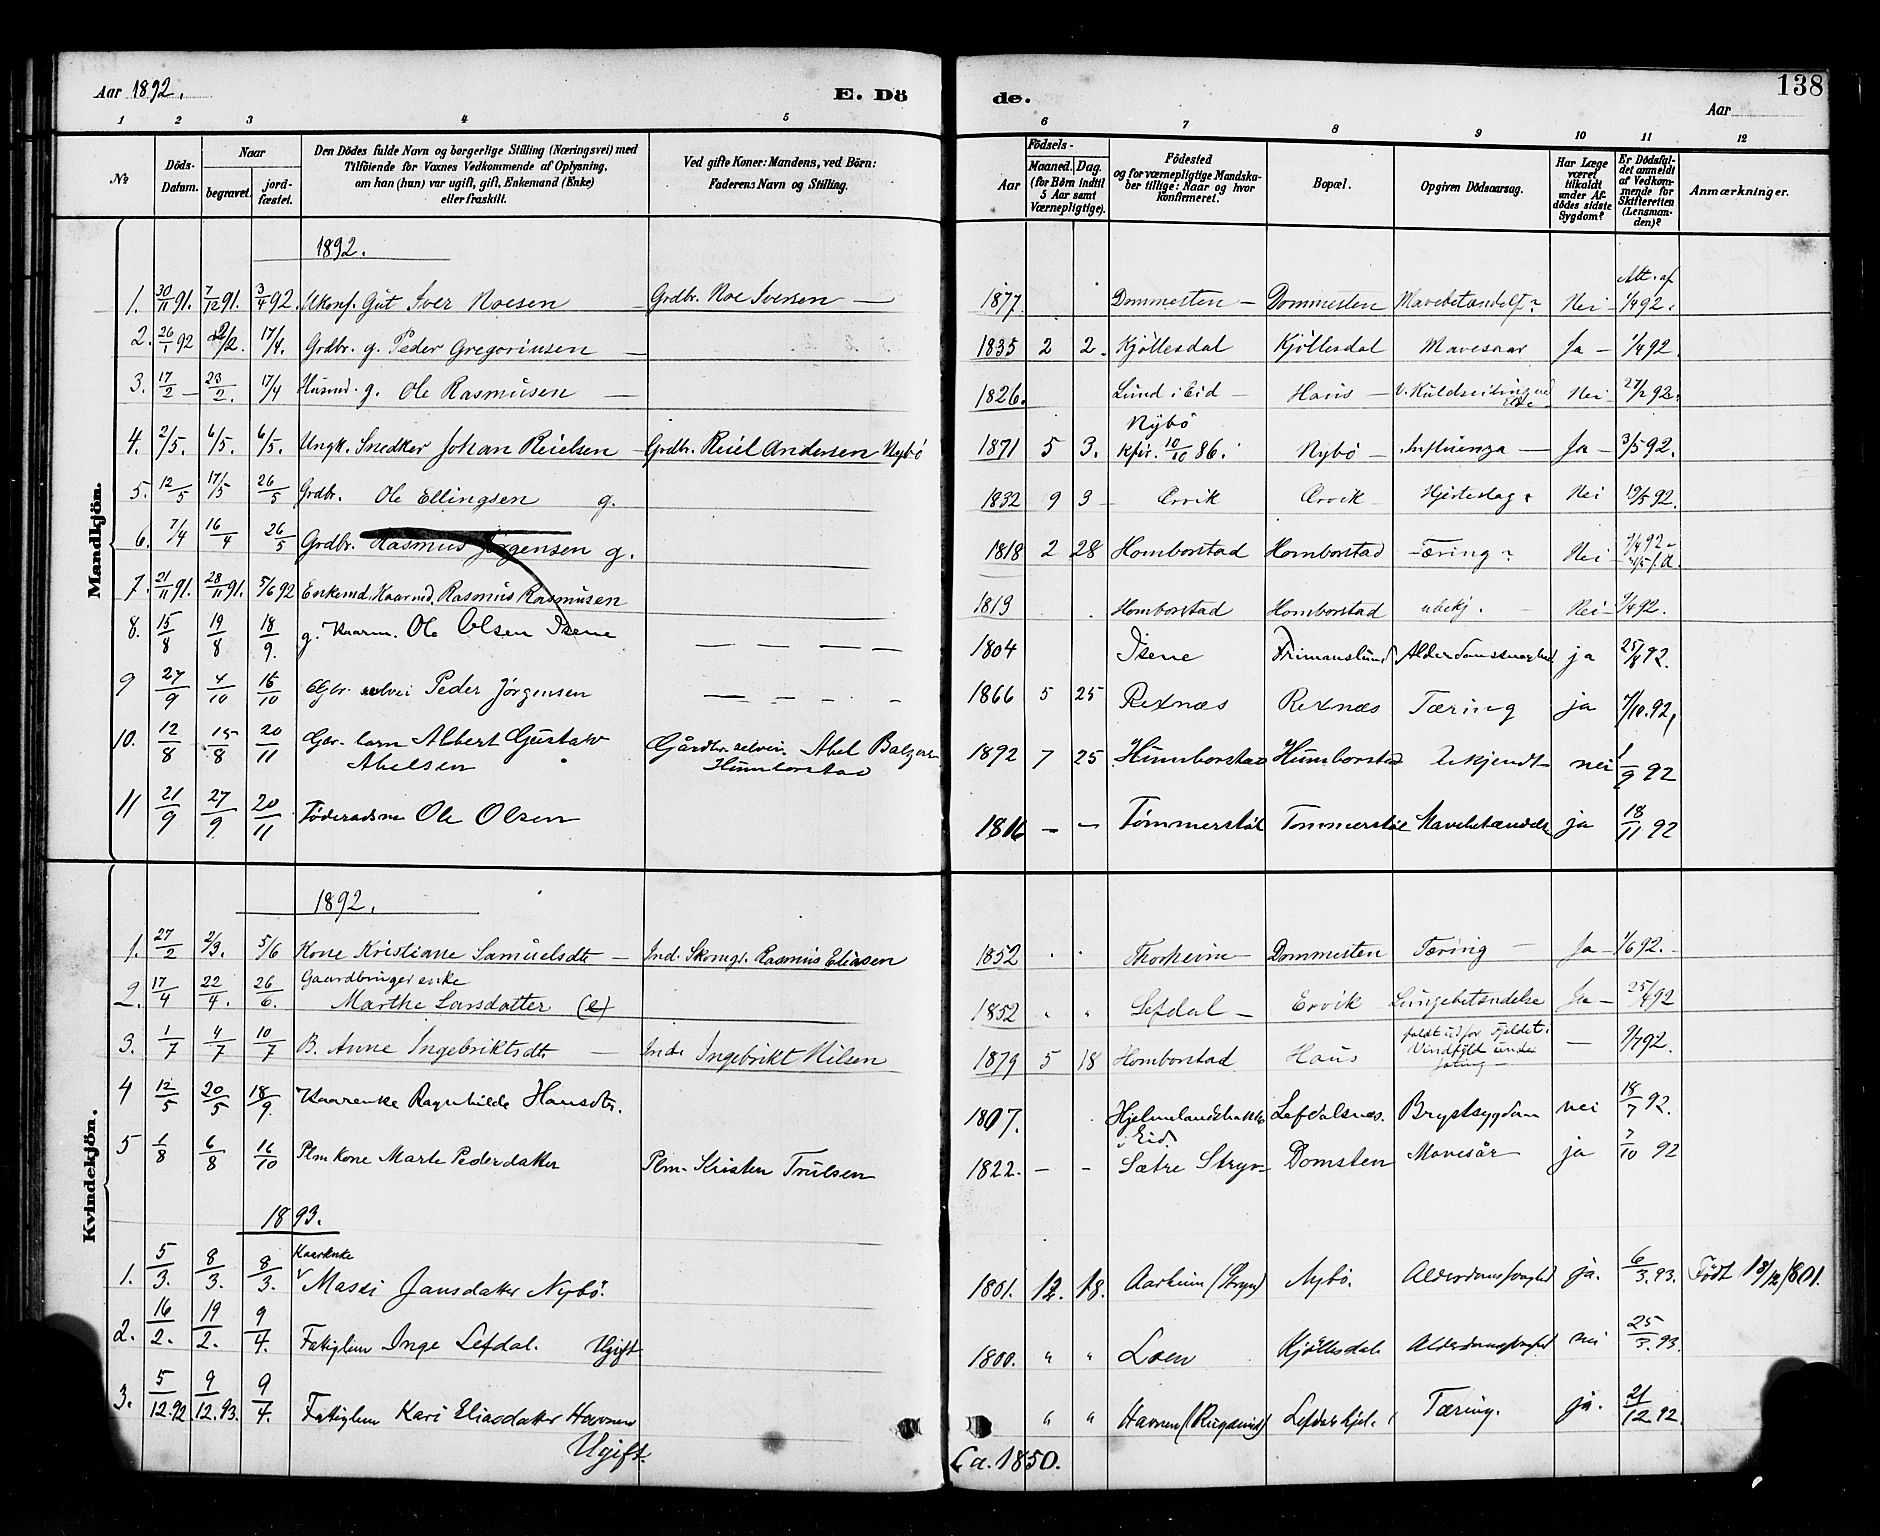 Aar 1892. E. Dö de. Aar 138
1 2 3 4 5 6 7 8 9 10 11 12
No
Döds-Datum.
Naar
begravet.
jord-fæstet.
Den Dödes fulde Navn og borgerlige Stilling (Næringsvei) med
Tilföiende for Voxnes Vedkommende af Oplysning,
om han (hun) var ugift, gift, Enkemand (Enke)
eller fraskilt.
Ved gifte Koner: Mandens, ved Börn:
Faderens Navn og Stilling.
Födsels-
Aar
Maaned. Dag.
(for Börn indtil
5 Aar samt
Værnepligtige).
Födested
og for værnepligtige Mandska-
ber tillige: Naar og hvor
konfirmeret.
Bopæl.
Opgiven Dödsaarsag.
Har Læge
været
tilkaldt
under Af-
dödes sidste
Sygdom?
Er Dödsfal-
det anmeldt
af Vedkom-
mende for
Skifteretten
(Lensman-
den)?
Anmærkninger.
Mandkjön.
1892.
1. 30/11 91. 7/12 91. 3/4 92. Ukonf. Gut Iver Noesen — Grdbr. Noe Iversen — 1877 Dommesten — Dommesten Mavebetændelse Nei Att. af 1/4 92.
2. 26/1 92 2/2. 17/4. Grdbr. g. Peder Gregoriusen — 1835 2 2. Kjöllesdal Kjöllesdal Mavesaar Ja — 1/4 92.
3. 17/2 — 23/2. 17/4 Husmd. g. Ole Rasmusen — 1826. Lund i Eid — Haus — v. Kuldseiling Nei 27/2 92.
4. 2/5. 6/5. 6/5. Ungk. Snedker Johan Reielsen — Grdbr. Reiel Andersen Nybö 1871 5 3. Nybö Kfir. 10/10 86. Nybö — Influenza — Ja — 3/5 92.
5. 12/5 17/5 26/5 Grdbr. Ole Ellingsen g. 1832 9 3 Ervik Ervik Hjerteslag Nei 19/5 92.
6. 7/4 16/4 26/5 Grdbr. Rasmus Jörgensen g. 1818 2 28 Homborstad Homborstad Tæring Nei 7/4 92
7. 21/11 91. 28/11 91. 5/6 92 Enkemd. Kaarmd. Rasmus Rasmusen 1819 Homborstad Homborstad ubekj. Nei 1/4 92.
8. 15/8 19/8 18/9. g. Kaarm. Ole Olsen Isene — — — — 1804 Isene Frimanslund Alderdomssvaghed ja 25/8 92.
9 27/9 4/10 16/10 Gbr. selvei Peder Jörgensen — — — — 1866 5 25 Rexnæs Rexnæs Tæring ja 7/10. 92,
10. 12/8 15/8 20/11 Gbr. barn Albert Gustav Gårdbr. selvei. Abel Balzers. 1892 7 25 Humborstad Humborstad Ukjendt nei 1/9 92
Abelsen Humborstad
11 21/9 27/9 20/11 Föderaadsm Ole Olsen 1816 — — Tömmerstöl Tommerstöl Mavebetændelse ja 18/11 92
Kvindekjön.
1892.
1. 27/2 2/3. 5/6 Kone Kristiane Samuelsdtr — Ind. Skomgr. Rasmus Eliasen 1852 Thorheim — Dommesten Tæring — Ja — 1/6 92.
2. 17/4 22/4. 26/6. Gaardbruger enke
Marthe Larsdatter (e) 1852 " " Lefdal — Ervik Lungebetændelse Ja — 25/4 92
3. 1/7 4/7 10/7 B. Anne Ingebriktsdtr — Inds. Ingebrikt Nilsen 1879 5 18 Homborstad Haus faldt udfor Fjeldet. — 9/7 92.
4 12/5 20/5 18/9. Kaarenke Ragnhilde Hansdtr. 1807. Hjelmelandsbakke i Eid. Lefdalsnes. Brystsygdom nei 18/7 92.
5 1/8 6/8 16/10 Plm Kone Marte Pedersdatter Plm. Kristen Trulsen 1822. — — Sætre Stryn — Domsten Mavesår ja 7/10 92
1893.
1. 5/3. 8/3. 8/3. Kaarenke
Massi Jansdatter Nybö. 1801. 12. 18. Aarheim (Stryn) Nybö. Alderdomssvaghed ja. 6/3. 93. Födt 18/12 1801.
2. 16/2. 19/2. 9/4. Fattiglem Inge Lefdal. Ugift 1800. " " Loen Kjöllesdal. Alderdomssvaghed nei 25/3. 93.
3. 5/12. 92 9/12. 93. 9/4. Fattiglem Kari Eliasdatter Havnen
Ugift. Ca. 1850. " " Havnen (Rugsund) Tæring. ja. 21/12 92.